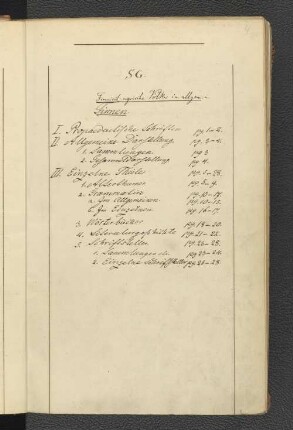 SG.
Finnisch-ugrische Völker im allgem.
Finnen.
I. Propaedeutische Schriften pg. 1-2.
II. Allgemeine Darstellung pg. 3-4.
1. Sammlungen pg. 3
2. Gesammtdarstellung pg. 4.
III. Einzelne Theile pg. 5-28.
1. Alterthümer pg. 5-9.
2. Grammatik pg. 10-17.
a. Im Allgemeinen pg. 10-12.
b. Im Einzelnen pg. 16-17.
3. Wörterbücher pg. 18-20.
4. Literaturgeschichte pg. 21-22.
5. Schriftstellen pg. 23-28.
1. Sammlungen pg. 23-24.
2. Einzelne Schriftsteller pg. 25-28.